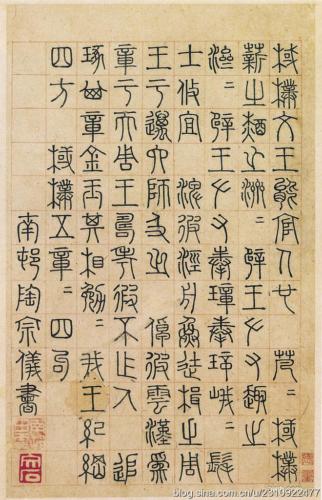 棫樸文王能官人也 芃〻棫樸
薪之槱之濟〻辟王左右趣之
濟〻辟王左右奉璋奉璋峨〻髦
士攸宜 淠彼涇舟烝徒楫之周
王于邁六師及之 倬彼雲漢為
章于天周王壽考遐不作人 追
琢其章金玉其相勉〻我王紀綱
四方 棫樸五章〻四句
南邨陶宗儀書
blog.sina.com.cn/u/2310922477